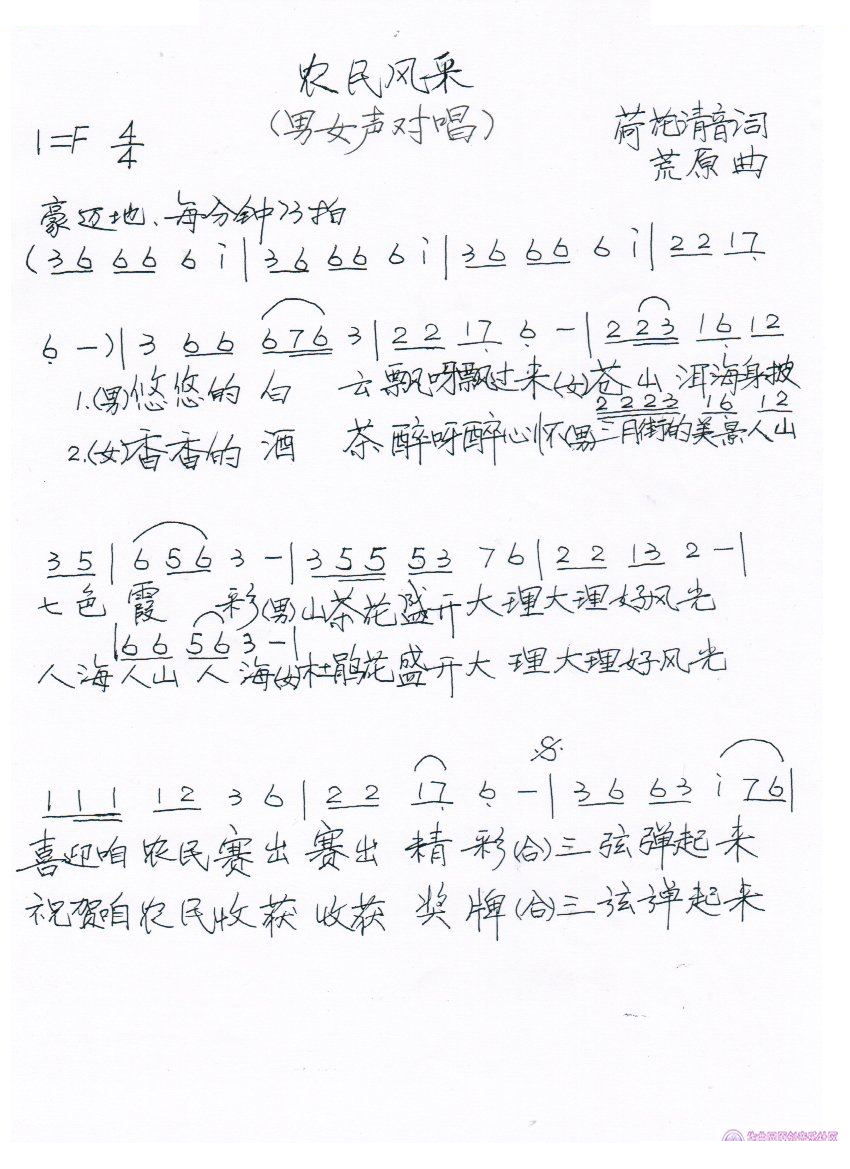 农民风采
(男女声对唱)
1=F 4/4
荷花清音词
荒原曲
豪迈地、每分钟73拍
(36 66 6 i | 36 66 6 i | 36 66 6 i | 22 17
6 -) | 3 66 676 3 | 22 17 6 - | 2 223 16 12
1.(男)悠悠的白云飘呀飘过来(女)苍山洱海身披
2223 16 12
2.(女)香香的酒茶醉呀醉心怀(男)三月街的美景人山
35 | 6 56 3 - | 355 53 76 | 22 13 2 - |
七色霞彩(男)山茶花盛开大理大理好风光
| 66 563 - |
人海人山人海(女)杜鹃花盛开大理大理好风光
111 12 36 | 22 17 6 - | 36 63 i 76 |
喜迎咱农民赛出赛出精彩(合)三弦弹起来
祝贺咱农民收获收获奖牌(合)三弦弹起来